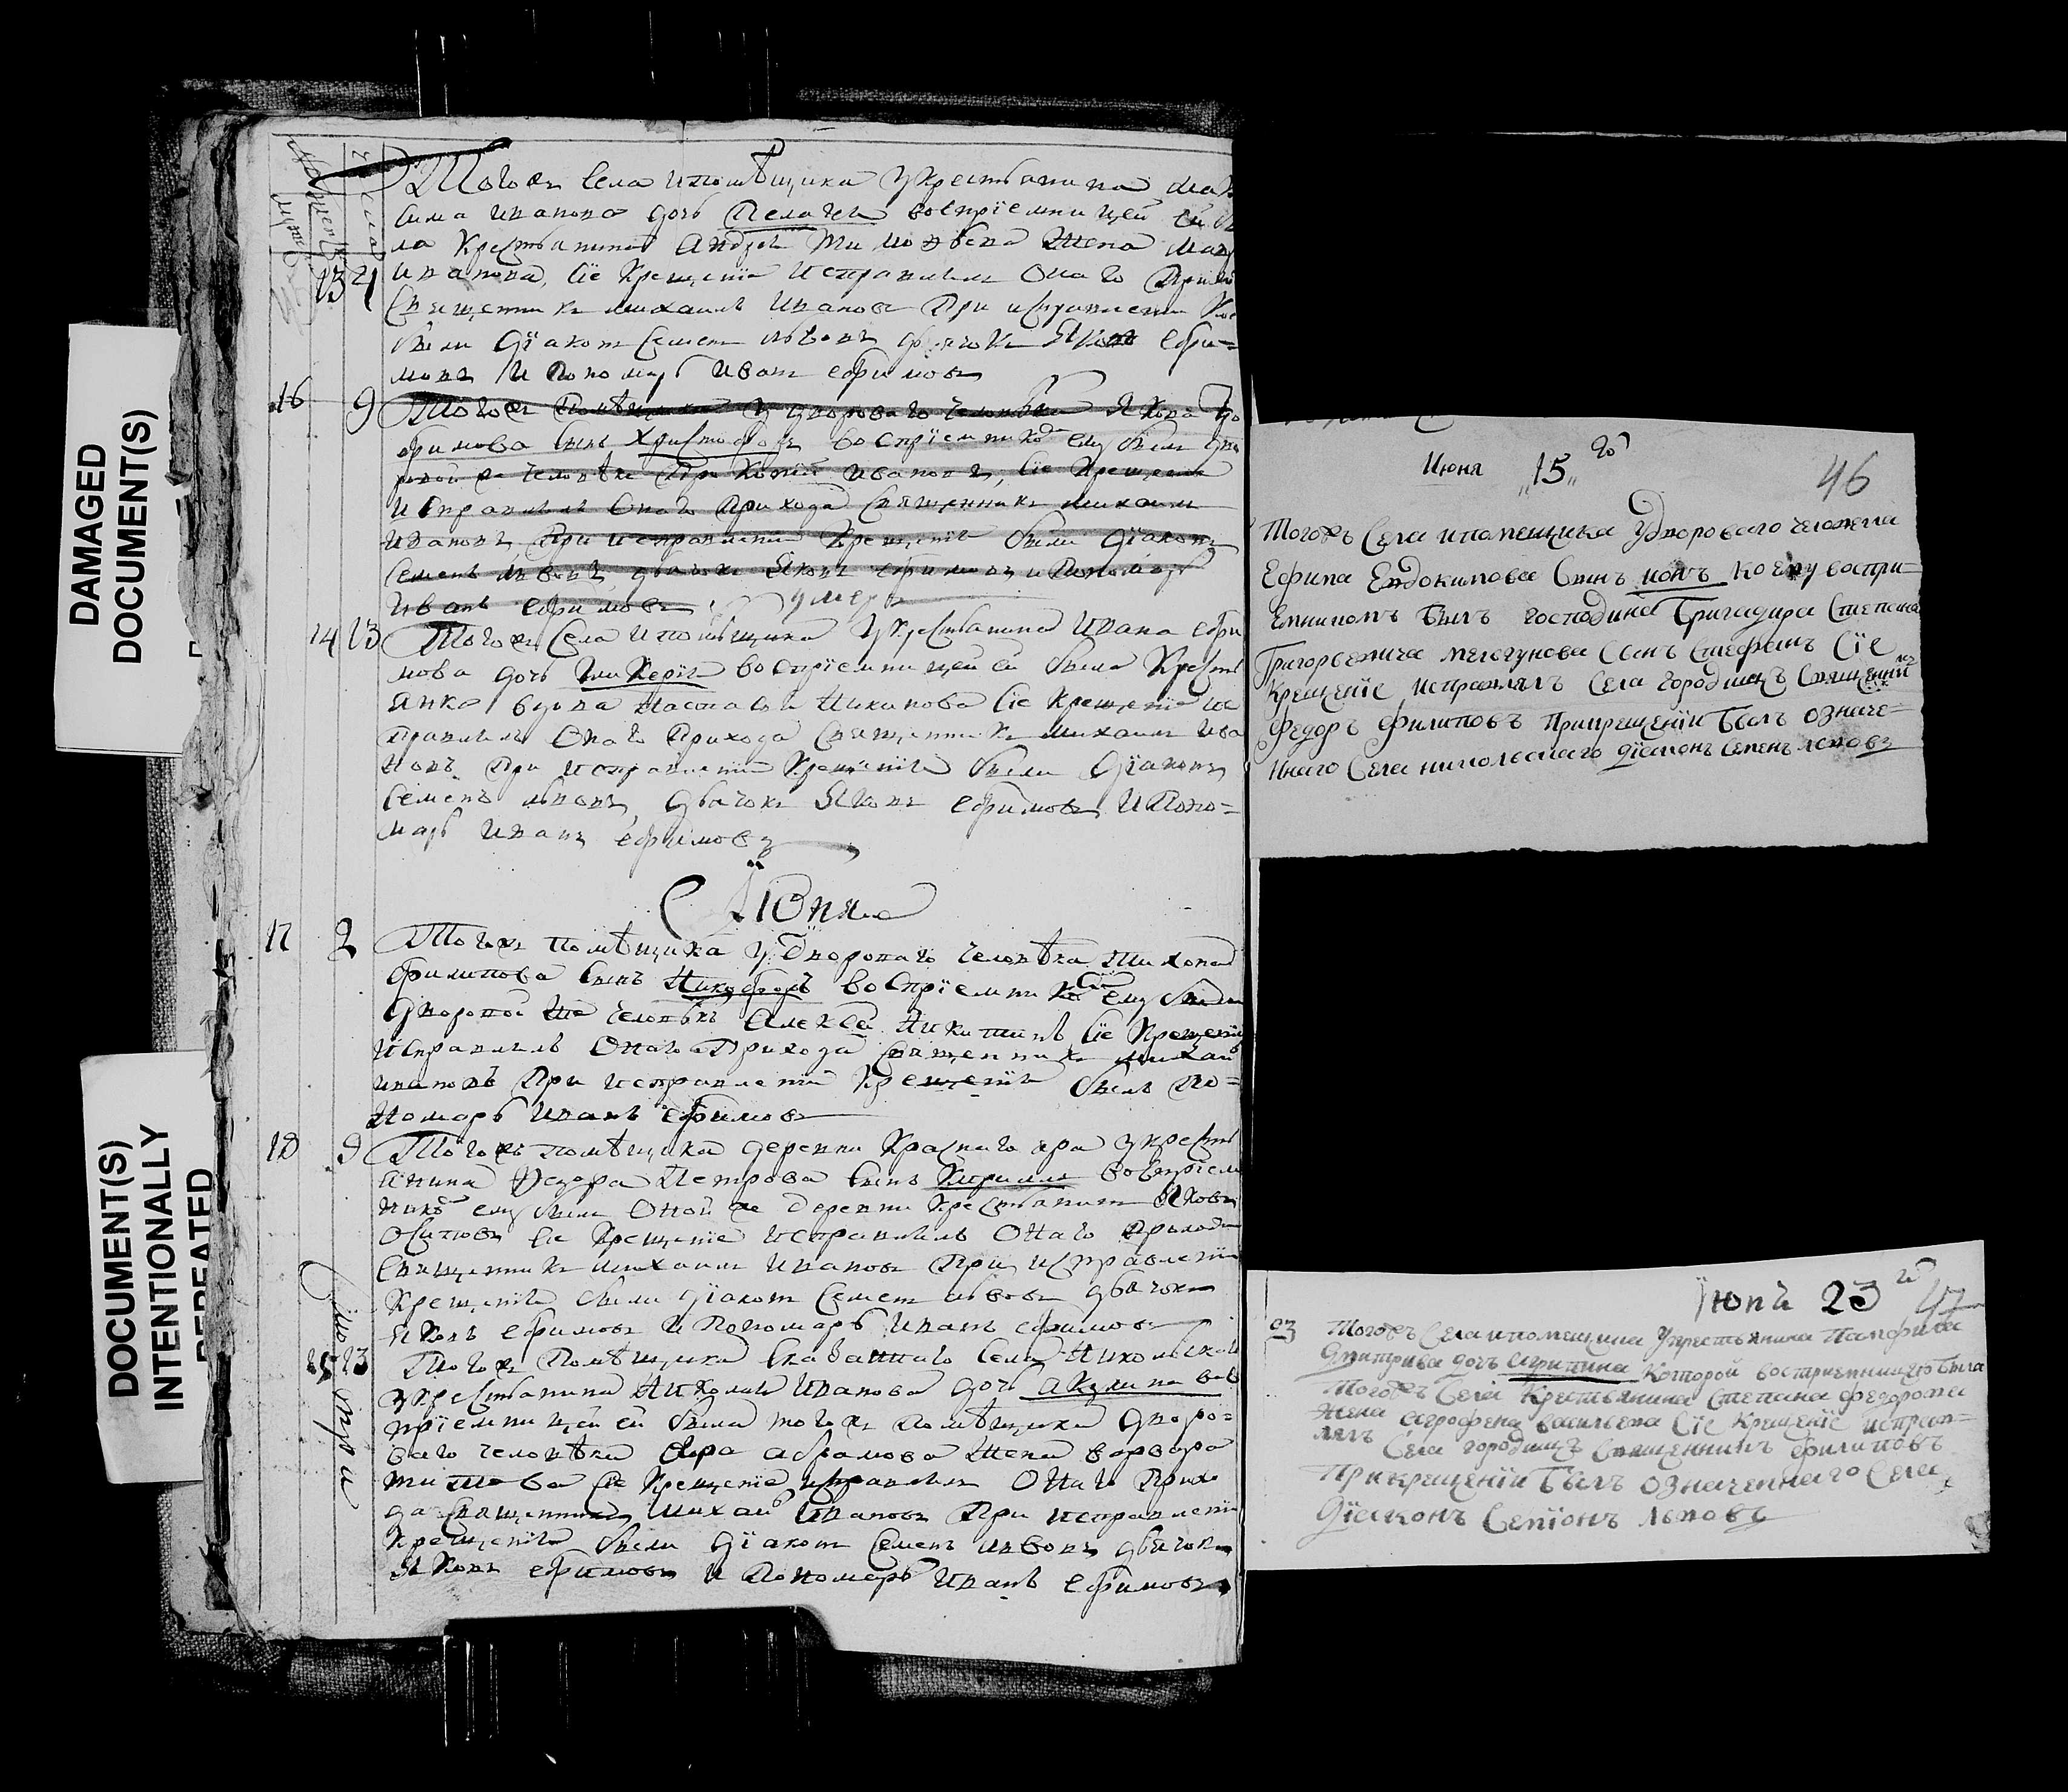 Тогожъ села и помѣщика у крестьянина Мак
сима Иванова дочь Пелагея воспріемницей ей бы
ла крестьянина Андрея жена
13 4 Иванова, сіе крещеніе исправлялъ онаго прихо
священникъ Михаилъ Ивановъ при исправленіи кре
были діаконъ Семенъ Львовъ дьячокъ Яковъ Ефи=
мовъ и пономарь Иванъ Ефимовъ
16 9 Тогожъ помѣщика у двороваго человѣка Якова
фимова сынъ Христофоръ воспріемникомъ ему былъ дво
ровой же человѣкъ Прокофей Ивановъ, сіе крещеніе
исправлялъ онаго прихода священникъ Михаилъ
Ивановъ при исправленіи крещенія были діаконъ
Семенъ Львовъ дьячокъ Яковъ Ефимовъ и пономарь
Иванъ Ефимовъ умеръ
14 13 Тогожъ села и помѣщика у крестьянина Ивана Ефи
мова дочь Гликерія воспріемницей ей была кресть
янка вдова Настасья Никипова сіе крещеніе ис
правлялъ онаго прихода священникъ Михаилъ Ива
новъ при исправленіи крещенія были діаконъ
Семенъ Львовъ, дьячокъ Яковъ Ефимовъ и поно=
марь Иванъ Ефимовъ
Іюня
17 2 Тогожъ помѣщика у двороваго человѣка Тихона
Филипова сынъ Никифоръ воспріемникомъ ему былъ
дворовой же человѣкъ Алексѣй Никитинъ сіе крещеніе
исправлялъ онаго прихода священникъ Михаи
Ивановъ при исправленіи крещенія былъ по=
номарь Иванъ Ефимовъ
18 9 Тогожъ помѣщика деревни Краснаго яра у кресть
янина Федора Петрова сынъ Кирилъ воспріем
никомъ ему былъ оной же деревни крестьянинъ Яковъ
Осиповъ сіе крещеніе исправлялъ онаго прихода
священникъ Михаилъ Ивановъ при исправленіи
крещенія были діаконъ Семенъ Львовъ дьячокъ
Яковъ Ефимовъ и пономарь Иванъ Ефимовъ
15 13 Тогожъ помѣщика сказаннаго села Никольска
у крестьянина Николая Иванова дочь Акулина вос
пріемницей ей была тогожъ помѣщика дворо=
ваго человѣка Абрамова жена Варвара
Титова сіе крещеніе исправлялъ онаго прихо
да священникъ Михаи Ивановъ при исправленіи
крещенія были діаконъ Семенъ Львовъ дьячокъ
Яковъ Ефимовъ и пономарь Иванъ Ефимовъ
DAMAGED
DOCUMENT(S)
DOCUMENT(S)
INTENTIONALLY
REPEATED
Июня „15„ го
46
Тогожъ села ипомещика удвороваго человека
Ефима Евдокимова сынъ ионъ коему воспри=
емникомъ былъ господина бригадира Степана
Григорьевича мелгунова сынъ Стефанъ сїе
крещенїе исправлялъ села городищъ священникъ
Федоръ Филиповъ прикрещенїи былъ означе=
ннаго села никольскаго дїаконъ семенъ левовъ
Іюня 23 го 47
23 Тогожъ села ипомещика укрестьянина Памфила
Дмитрива дочь агрипина которой восприемницею была
тогожъ села крестьянина Степана федорова
жена агрофена васильева сїе крещенїе исправ=
лялъ села городищъ священникъ филиповъ
прикрещенїи былъ означеннаго села
дїаконъ семїонъ левовъ